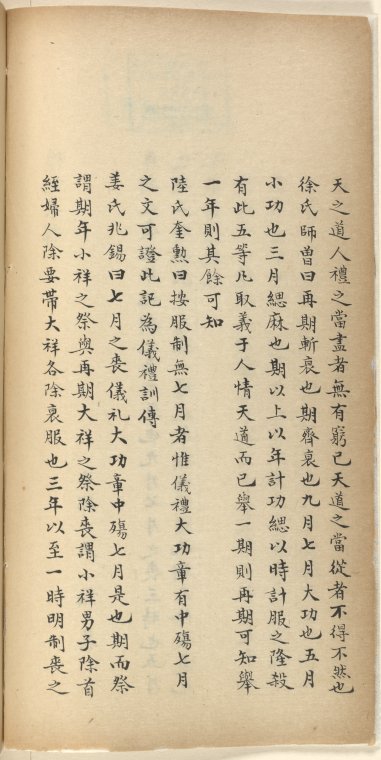 天之道人禮之當盡者無有窮已天道之當從者不得不然也
徐氏師曾曰再期斬衰也期齊衰也九月七月大功也五月
小功也三月緦麻也期以上以年計功緦以時計服之隆殺
有此五等凡取義于人情天道而已舉一期則再期可知舉
一年則其餘可知
陸氏奎勲曰按服制無七月者惟儀禮大功章有中殤七月
之文可證此記為儀禮訓傳
姜氏兆錫曰七月之喪儀礼大功章中殤七月是也期而祭
謂期年小祥之祭與再期大祥之祭除喪謂小祥男子除首
絰婦人除要帶大祥各除衰服也三年以至一時明制喪之